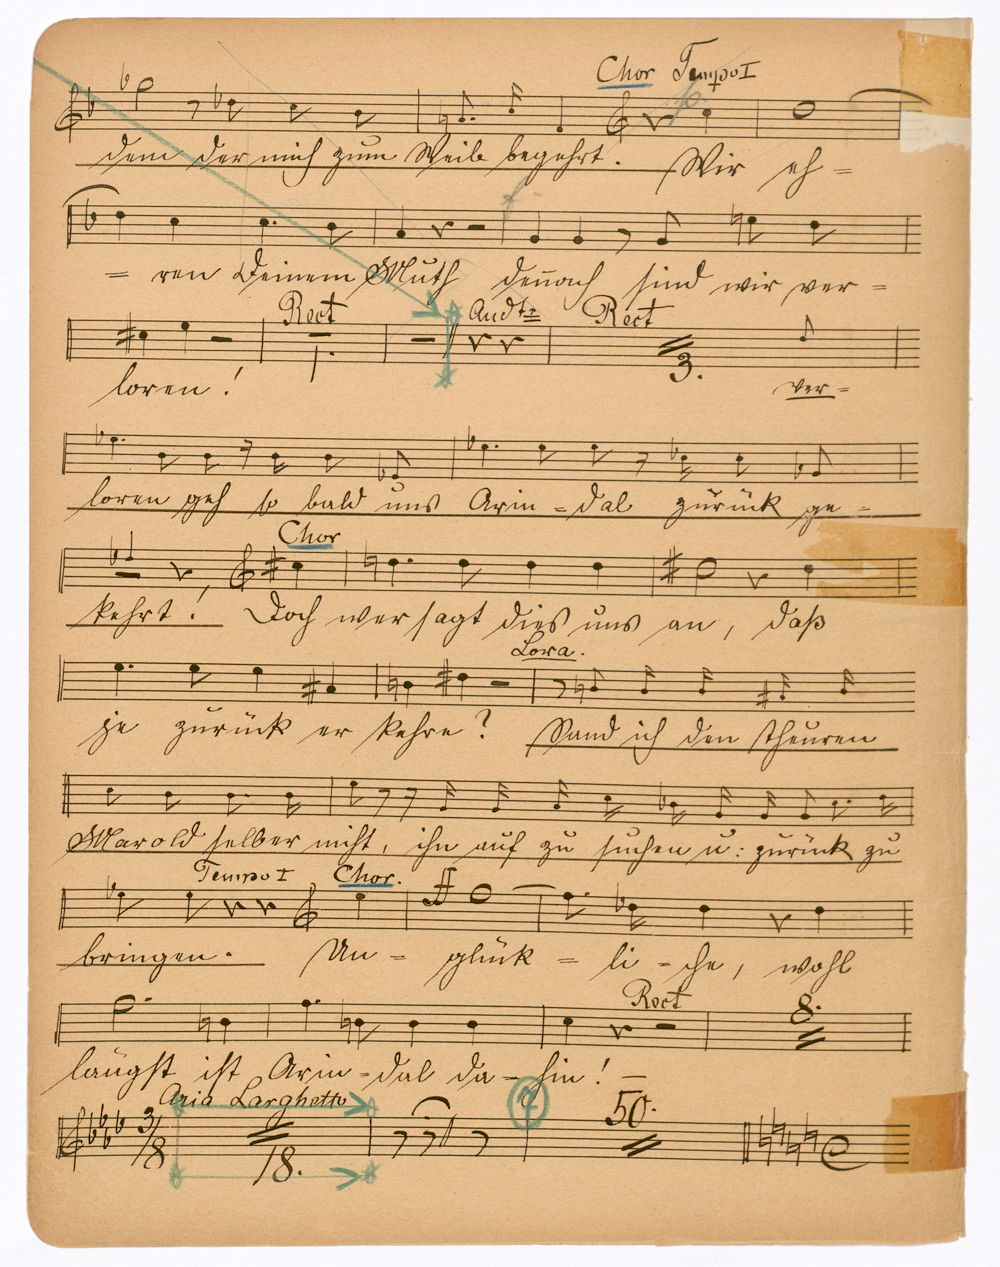 Chor Tempo I
dem der mich zum Weib begehrt. Wir eh =
= ren Deinem Muth dennoch sind wir ver =
Rect Andte Rect
1. 3.
loren! ver =
loren geh so bald uns Arin = dal zurück ge =
Chor
kehrt! Doch wer sagt dies uns an, daß
Lora.
je zurück er kehre? Fand ich den theuren
Marold selber nicht, ihn auf zu suchen u: zurück zu
Tempo I Chor.
bringen. Un = glück = li = che, wohl
Rect
8.
längst ist Arin = dal da = hin! =
Aria Larghetto
3/8 18. 7 50.